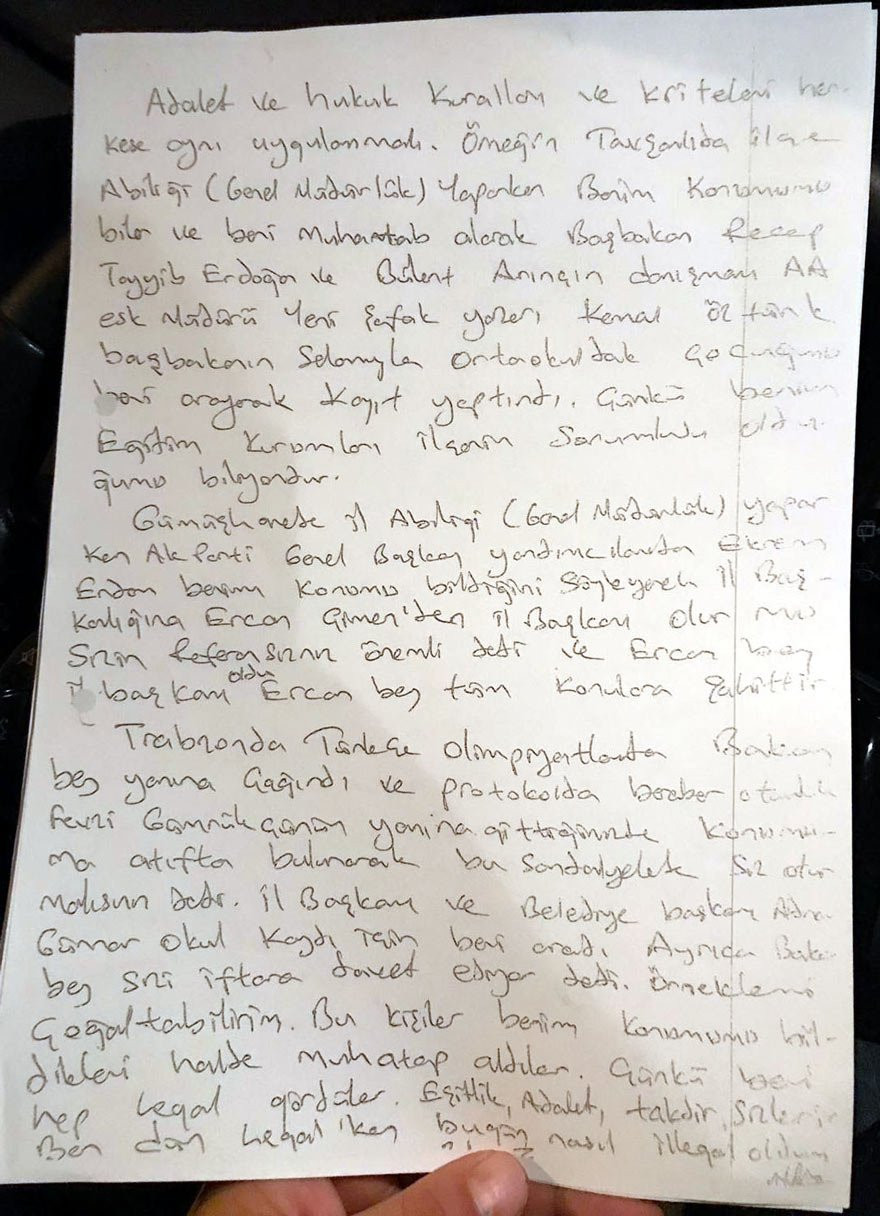 Adalet ve hukuk Kuralları ve kriterleri her-
kese aynı uygulanmalı. Örneğin Tavşanlıda ilçe
Abiliği (Genel Müdürlük) Yaparken Benim Konumumu
bilen ve beni Muhattab alarak Başbakan Recep
Tayyib Erdoğan ve Bülent Arınçın danışmanı AA
eski Müdürü Yeni Şafak yazarı Kemal Öztürk
başbakanın Selamıyla Ortaokuldaki çocuğunu
beni arayarak Kayıt yaptırdı. Çünkü benim
Eğitim Kurumları ilçenin Sorumlusu oldu-
ğumu biliyordur.
Gümüşhanede il Abiliği (Genel Müdürlük) yapar
Ken Ak Parti Genel Başkan yardımcılarından Ekrem
Erdem benim Konumu bildiğini Söyleyerek il Baş-
kanlığına Ercan Çimen'den il Başkanı Olur mu
Sizin Referansınız önemli dedi ve Ercan bey
il başkanı oldu Ercan bey tüm Konulara Şahittir
Trabzonda Türkçe olimpiyatlarında Bakan
bey yanına Çağırdı ve protokolda beraber oturduk
Fevzi Gümrükçünün yanına gittiğimizde Konumu-
ma atıfta bulunarak bu Sandalyelede Siz otur
malısın dedi. İl Başkanı ve Belediye başkanı
Günnar Okul Kaydı için beni aradı Ayrıca Bakan
bey Sizi iftara davet ediyor dedi. Örneklerni
Çoğaltabilirim. Bu Kişiler benim Konumumu bil-
dikleri halde Muhatap aldılar. Çünkü beni
hep Legal gördüler. Eşitlik, Adalet, takdir, Sizlerin
Ben dün Legal iken bugün nasıl illegal oldum